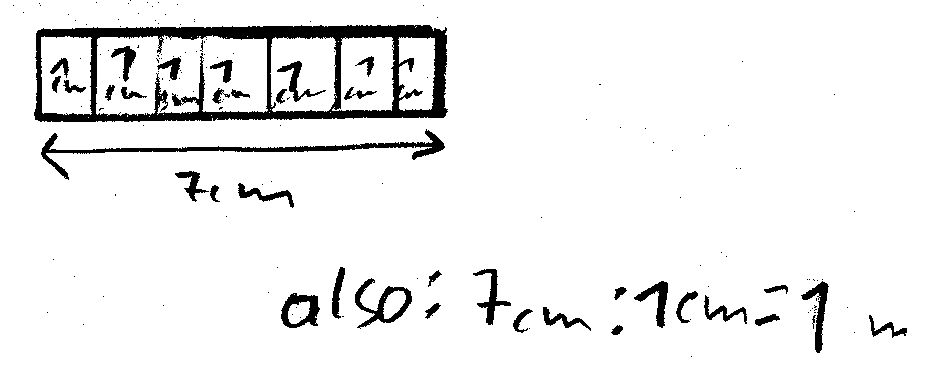 1cm 1cm 1cm 1cm 1cm 1cm 1cm
7cm
also: 7cm:1cm=1 m